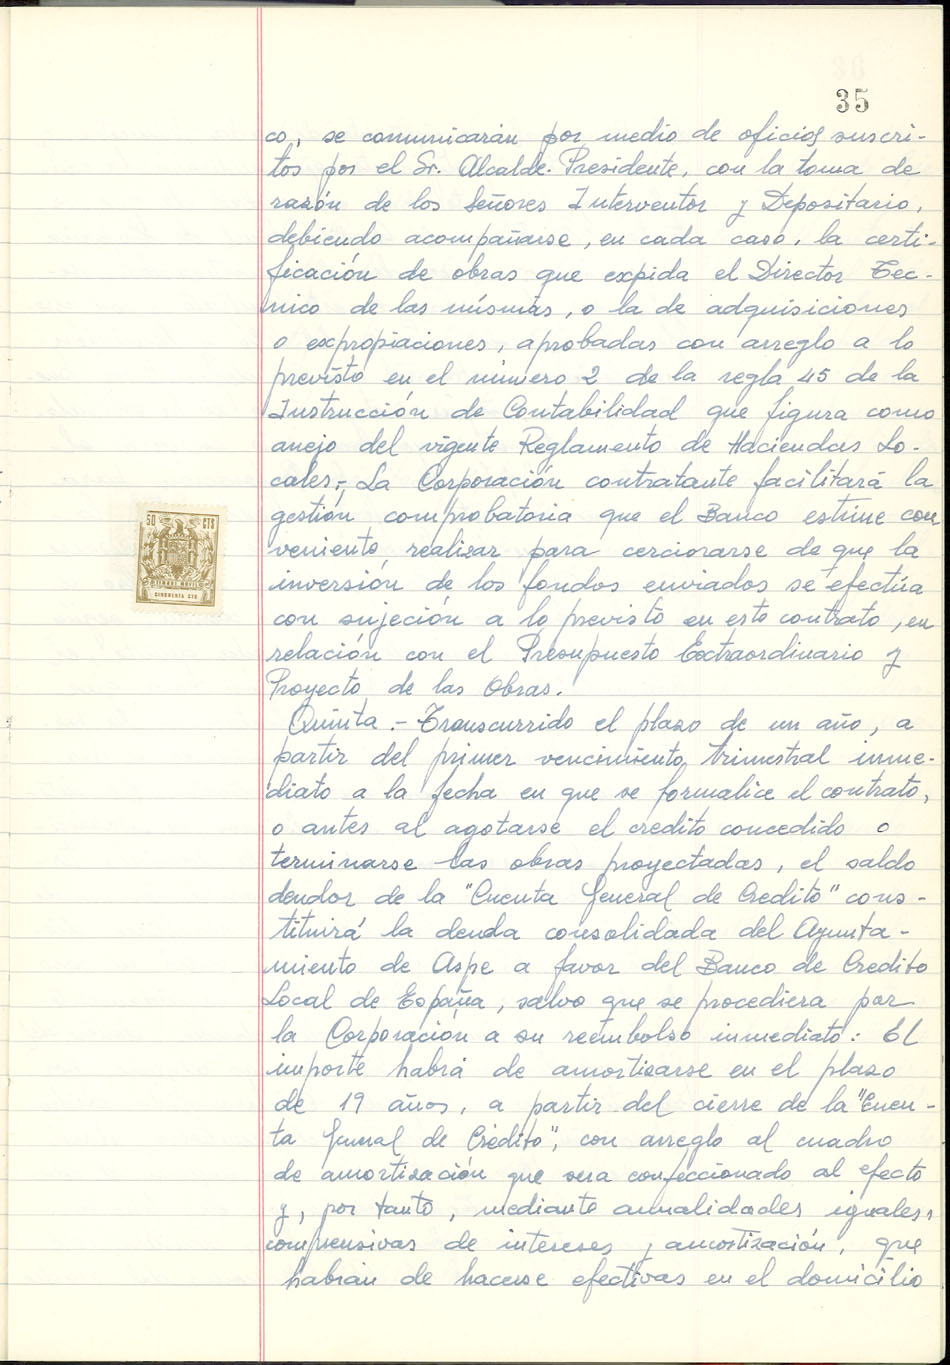 35
co, se comunicarán por medio de oficios suscri-
tos por el Sr. Alcalde-Presidente, con la toma de
razón de los Señores Interventor y Depositario,
debiendo acompañarse, en cada caso, la certi-
ficación de obras que expida el Director Tec-
nico de las mismas, o la de adquisiciones
o expropiaciones, aprobadas con arreglo a lo
previsto en el número 2 de la regla 45 de la
Instrucción de Contabilidad que figura como
anejo del vigente Reglamento de Haciendas Lo-
cales;- La Corporación contratante facilitará la
gestión comprobatoria que el Banco estime con
veniente, realizar para cerciorarse de que la
inversión de los fondos enviados se efectúa
con sujeción a lo previsto en este contrato, en
relación con el Presupuesto Extraordinario y
Proyecto de las Obras.
Quinta.- Transcurrido el plazo de un año, a
partir del primer vencimiento trimestral inme-
diato a la fecha en que se formalice el contrato,
o antes al agotarse el credito concedido o
terminarse las obras proyectadas, el saldo
deudor de la "Cuenta General de Credito" cons-
tituirá la deuda consolidada del Ayunta-
miento de Aspe a favor del Banco de Credito
Local de España, salvo que se procediera por
la Corporación a su reembolso inmediato: El
importe habrá de amortizarse en el plazo
de 19 años, a partir del cierre de la "Cuen-
ta General de Crédito", con arreglo al cuadro
de amortización que sera confeccionado al efecto
y, por tanto, mediante anualidades iguales,
comprensivas de intereses y amortización, que
habrán de hacerse efectivas en el domicilio
50 CTS
CINCUENTA CTS